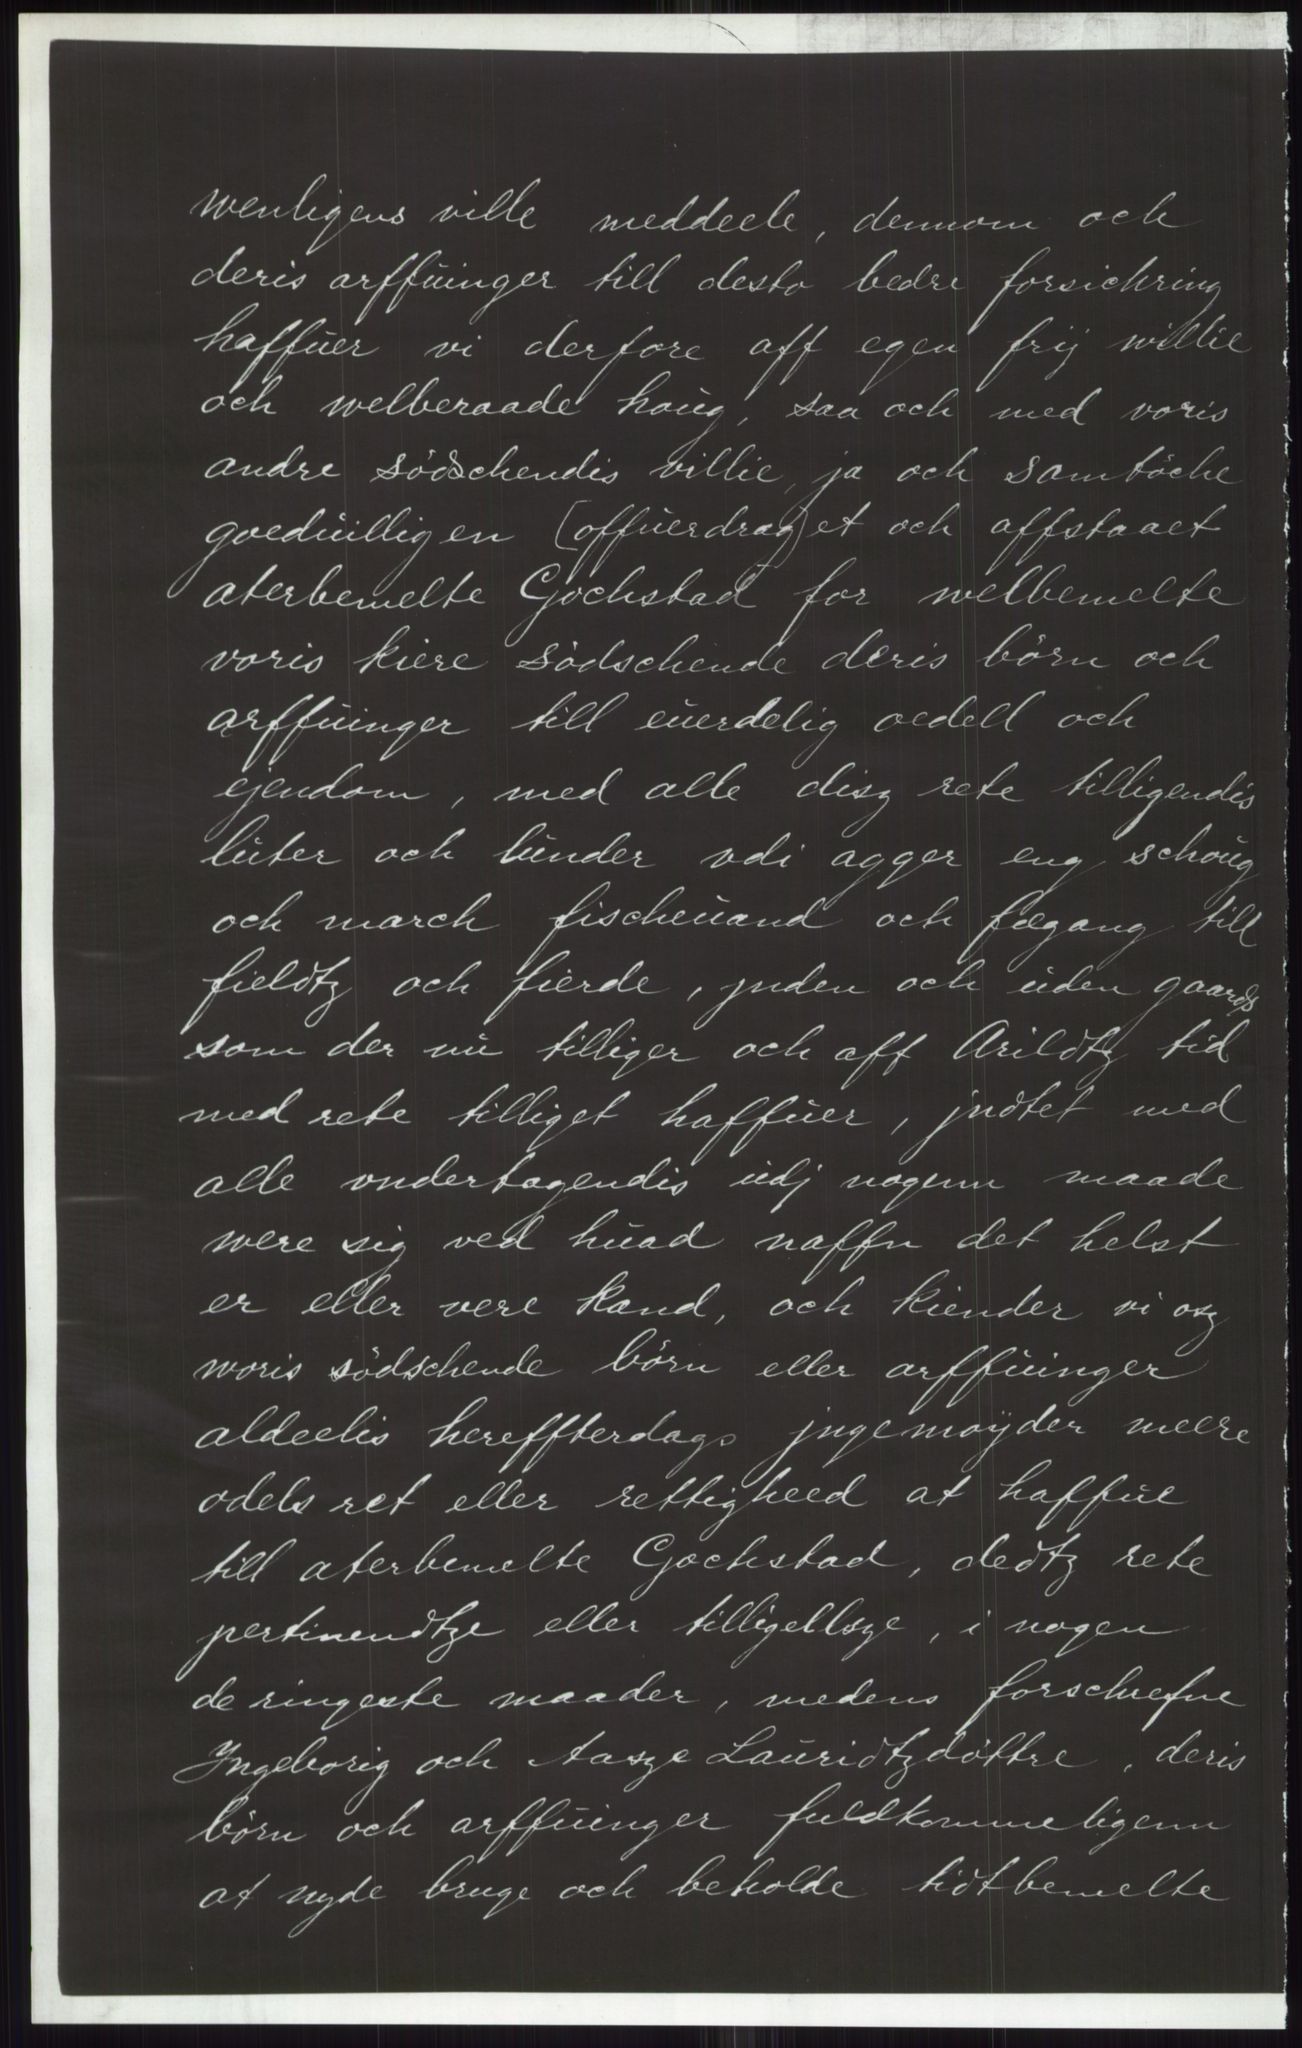 wenligens ville meddeele, dennom och
deris arffuinger till desto bedre forsichring
haffuer vi derfore aff egen frij willie
och welberaade houg, saa och med voris
andre södschendis villie, ja och samtöche
goeduilligen [offuerdrag]et och affstaaet
aterbemelte Gochstad for welbemelte
voris kiere södschende deris börn och
arffuinger till euerdelig oedell och
ejendom, med alle disz rete tilligendis
luter och lunder vdi agger eng schoug
och march fischeuand och fægang till
fieldtz och fierde, ynden och uden gaards
som der nu tilliger och aff Arildtz tid
med rete tilliget haffuer, jndtet med
alle vndertagendis udj nogenn maade
were sig ved huad naffn det helst
er eller vere kand, och kiender vi osz
woris södschende börn eller arffuinger
aldeelis hereffterdags jngemoyder meere
odels ret eller rettigheed at haffue
till aterbemelte Gochstad, dedtz rete
pertinendtze eller tilligellsze, i nogen
de ringeste maader, medens forschrefne
Ingeborig och Aasze Lauridtzdöttre, deris
börn och arffuinger fuldkommeligenn
at nyde bruge och beholde tidtbemelte